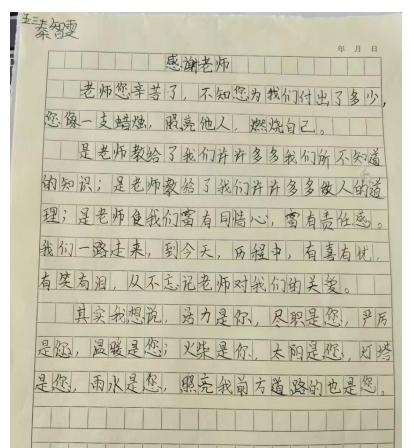 五三 秦智雯
年 月 日
感谢老师
老师您辛苦了，不知您为我们付出了多少，
您像一支蜡烛，照亮他人，燃烧自己。
是老师教给了我们许许多多我们所不知道
的知识；是老师教给了我们许许多多做人的道
理；是老师使我们富有同情心，富有责任感。
我们一路走来，到今天，历程中，有喜有忧，
有笑有泪，从不忘记老师对我们的关爱。
其实我想说，给力是你，尽职是您，严厉
是您，温暖是您；火柴是你，太阳是您，灯塔
是您，雨水是您，照亮我前方道路的也是您。